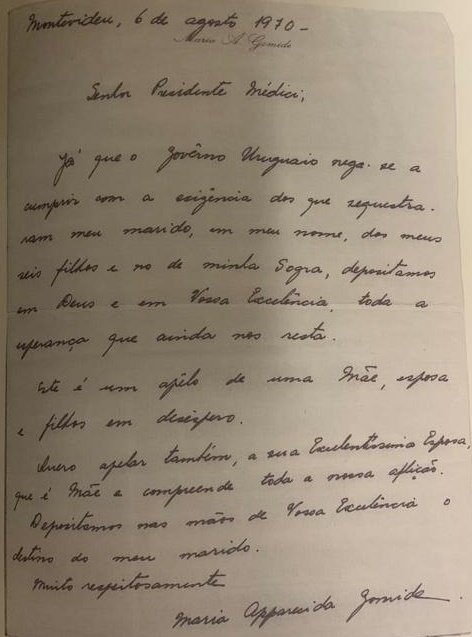 Montevideu, 6 de agosto 1970-
Maria A. Gomide
Senhor Presidente Médici,
Já que o Govêrno Uruguaio nega-se a
cumprir com a exigência dos que sequestra-
ram meu marido, em meu nome, dos meus
seis filhos e no de minha Sogra, depositamos
em Deus e em Vossa Excelência, toda a
esperança que ainda nos resta.
Este é um apêlo de uma Mãe, esposa
e filhos em desespero.
Quero apelar também, a sua Excelentíssima Esposa,
que é Mãe e compreende toda a nossa aflição.
Depositamos nas mãos de Vossa Excelência o
destino do meu marido.
Muito respeitosamente
Maria Apparecida Gomide